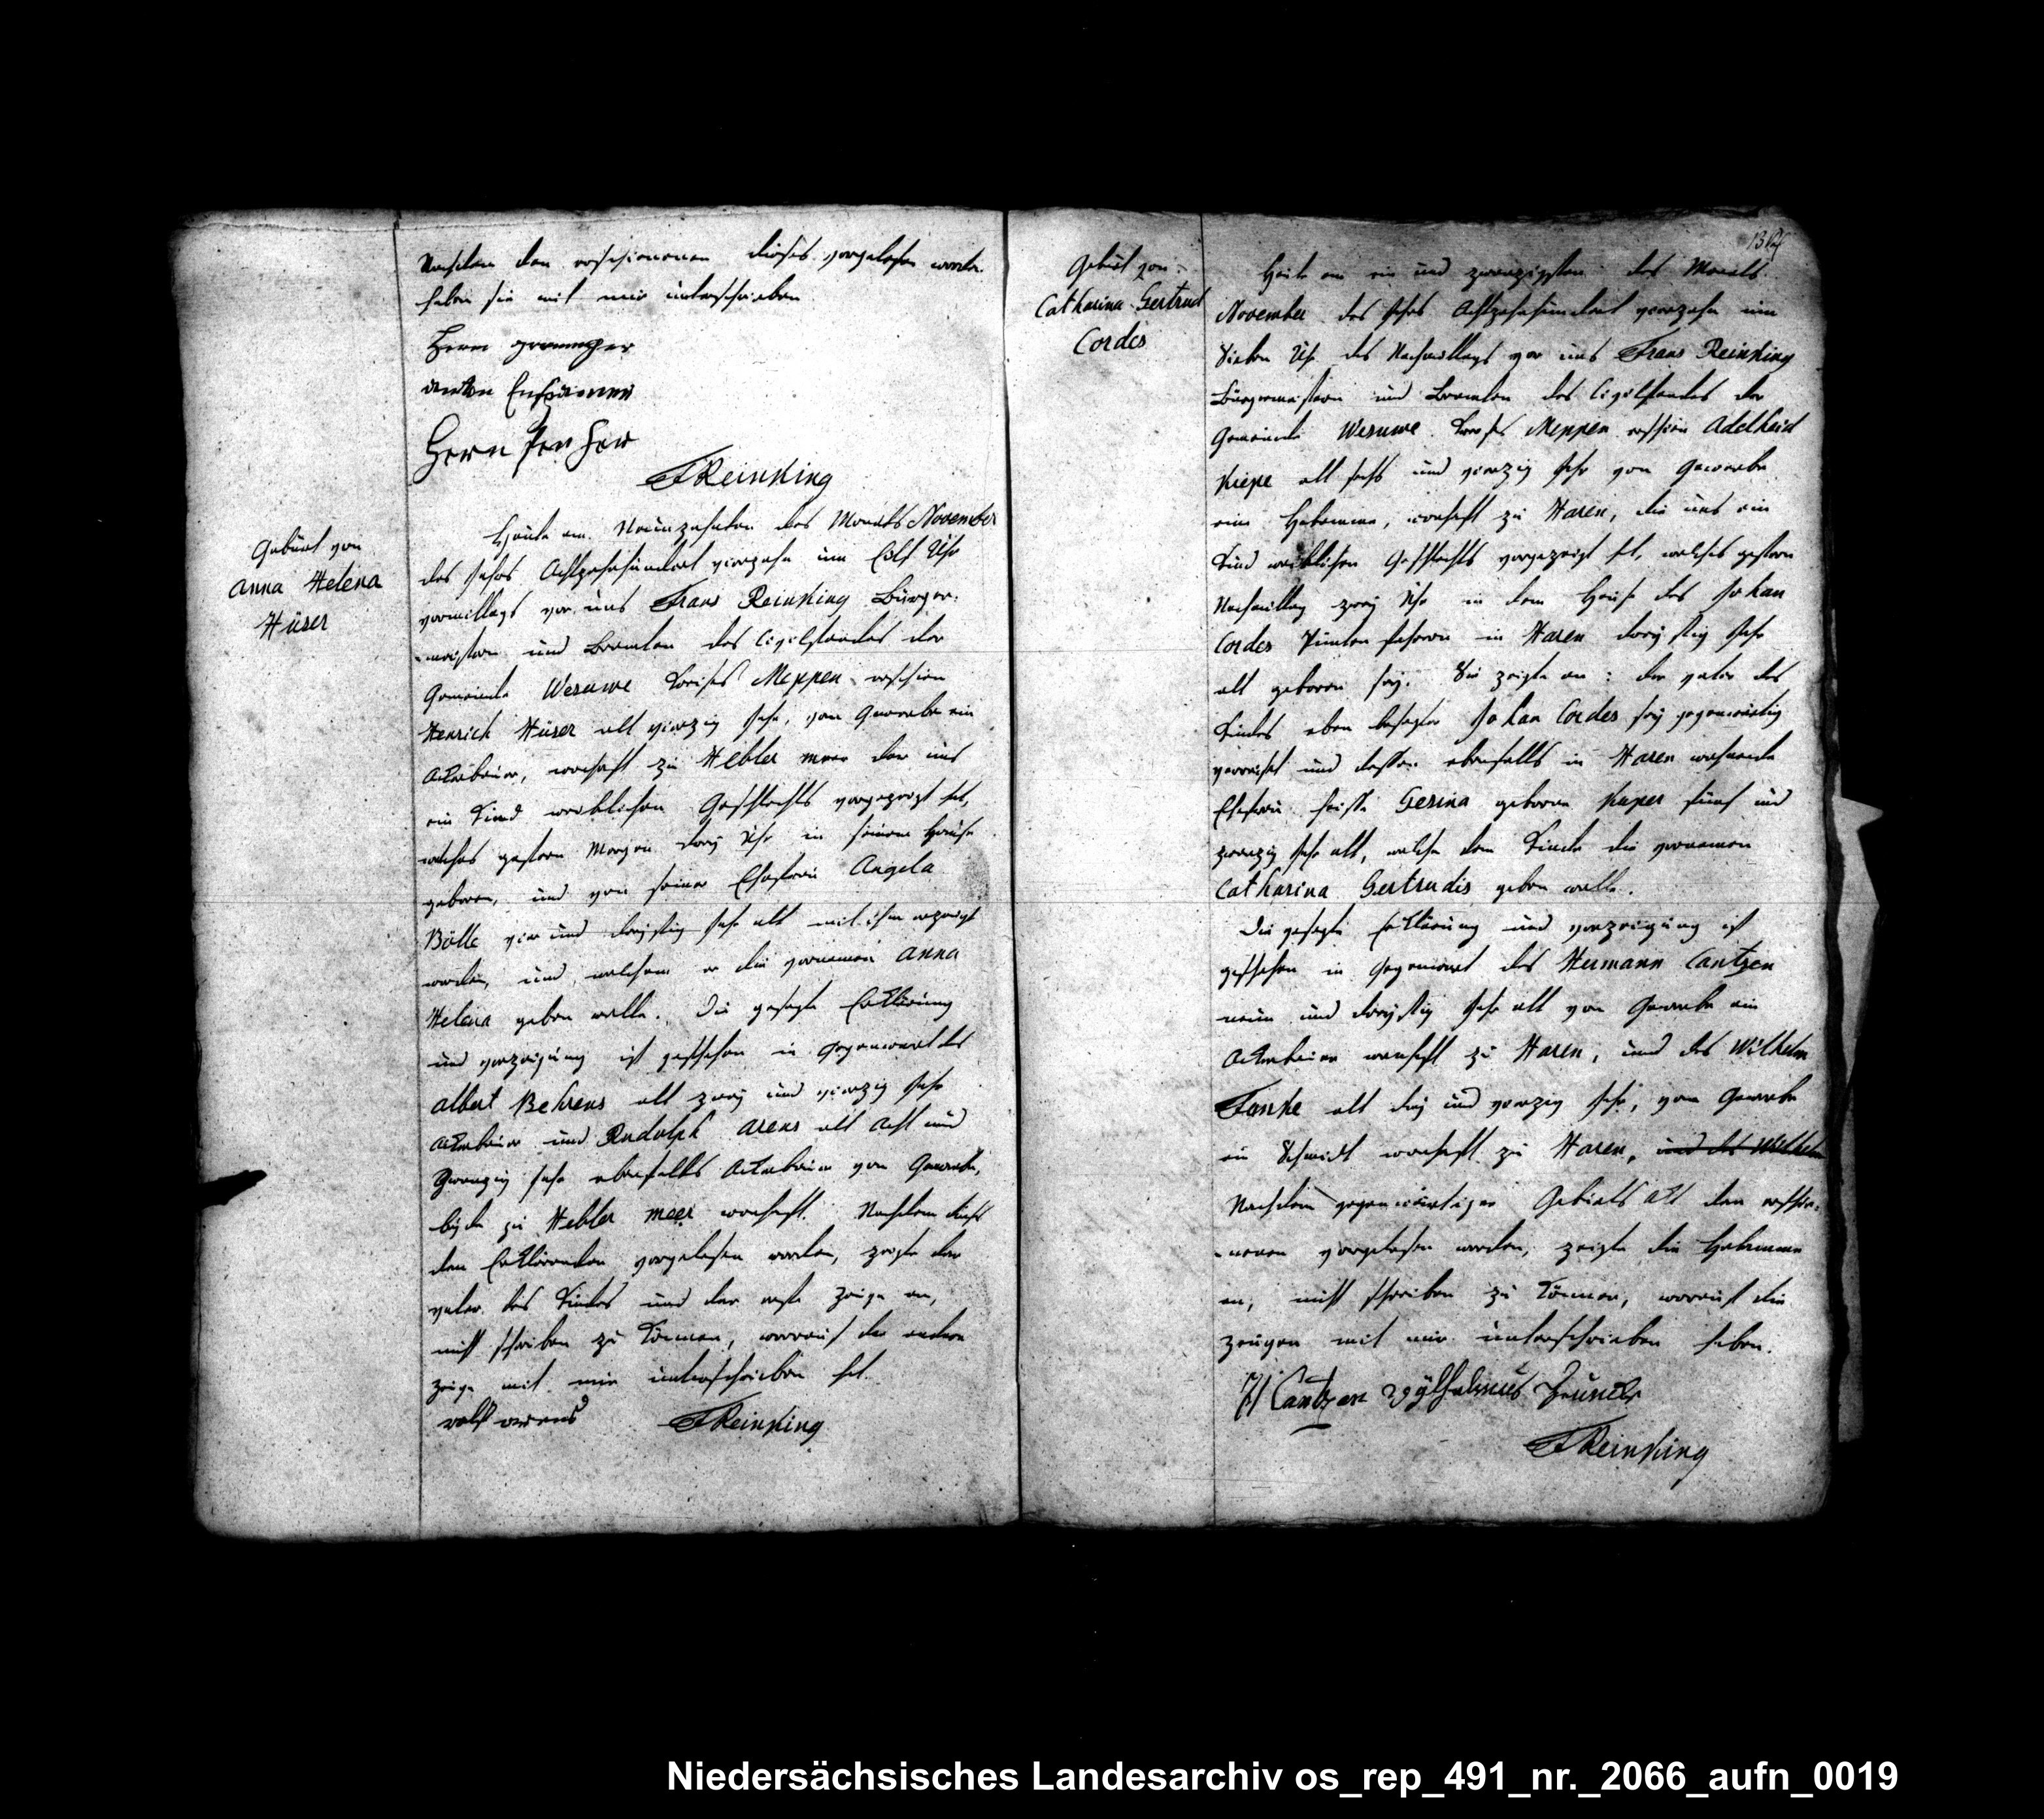 Nachdem den erschienenen dieses vorgelesen worden
haben sie mit mir unterschrieben
Herm
anton
Herm
FReinking
Geburt von
Anna Helena
Hüser
Heute am Neunzehnten des Monats November
des Jahrs Achtzehnhundert vierzehn um Eilf Uhr
vormittags vor uns Frans Reinking Bürger-
-meistern und Beamten des Civilstandes der
Gemeinde Wesuwe Kreises Meppen erschien
Henrich Hüser alt vierzig Jahr, von Gewerbe ein
Ackerbauer, wohnhaft zu Hebler meer der uns
ein Kind weiblichen Geschlechts vorgezeigt hat,
welches gestern Morgen drey Uhr in seinem Hause
geboren, und von seiner Ehefrau Angela
Bölle vier und dreyßig Jahr alt mit ihm erzeugt
worden, und welchem er die vornamen Anna
Helena geben wolle. Die gesagte Erklärung
und vorzeigung ist geschehen in Gegenwart des
Albert Behrens alt zwey und vierzig Jahr
Ackerbauer und Rudolph Arens alt Acht und
Zwanzig Jahr ebenfalls Ackerbauer von Gewerbe,
beyde zu Hebler meer wohnhaft. Nachdem dieses
den Erklärenden vorgelesen worden, zeigte der
vater des Kindes und der erste Zeuge an,
nicht schreiben zu können, worauf der andere
zeuge mit mir unterschrieben hat.
rolf arens FReinking
Geburt von
Catharina Gertrud
Cordes
Heute am ein und zwanzigsten des Monats
November des Jahrs Achtzehnhundert vierzehn um
Sieben Uhr des Nachmittags vor uns Frans Reinking
Bürgermeistern und Beamten des Civilstandes der
Gemeinde Wesuwe Kreises Meppen erschien Adelheid
Kiepe alt sechs und vierzig Jahr von Gewerbe
eine Hebamme, wohnhaft zu Haren, die uns ein
Kind weiblichen Geschlechts vorgezeigt hat, welches gestern
Nachmittag zwey Uhr in dem Hause des Johan
Cordes Pünten fahrern in Haren dreyßig Jahr
alt geboren sey. Sie zeigte an: der vater des
Kindes eben besagter Johan Cordes sey gegenwärtig
verreiset und dessen ebenfalls in Haren wohnende
Ehefrau heiße Gesina geboren Kuper fünf und
zwanzig Jahr alt, welche dem Kinde die vornamen
Catharina Gertrudis geben wolle.
Die gesagte Erklärung und vorzeigung ist
geschehen in Gegenwart des Hermann Cantzen
neun und dreyßig Jahr alt von Gewerbe ein
Ackerbauer wohnhaft zu Haren, und des Wilhelm
Funke alt drey und vierzig Jahr, von Gewerbe
ein Schmidt wohnhaft zu Haren, und des Wilhelm
Nachdem gegenwärtiger Geburts Act den erschie-
-nenen vorgelesen worden, zeigte die Hebamme
an, nicht schreiben zu können, worauf die
zeugen mit mir unterschrieben haben.
H Cantzen Wÿlhelmus
FReinking
Niedersächsisches Landesarchiv os_rep_491_nr._2066_aufn_0019